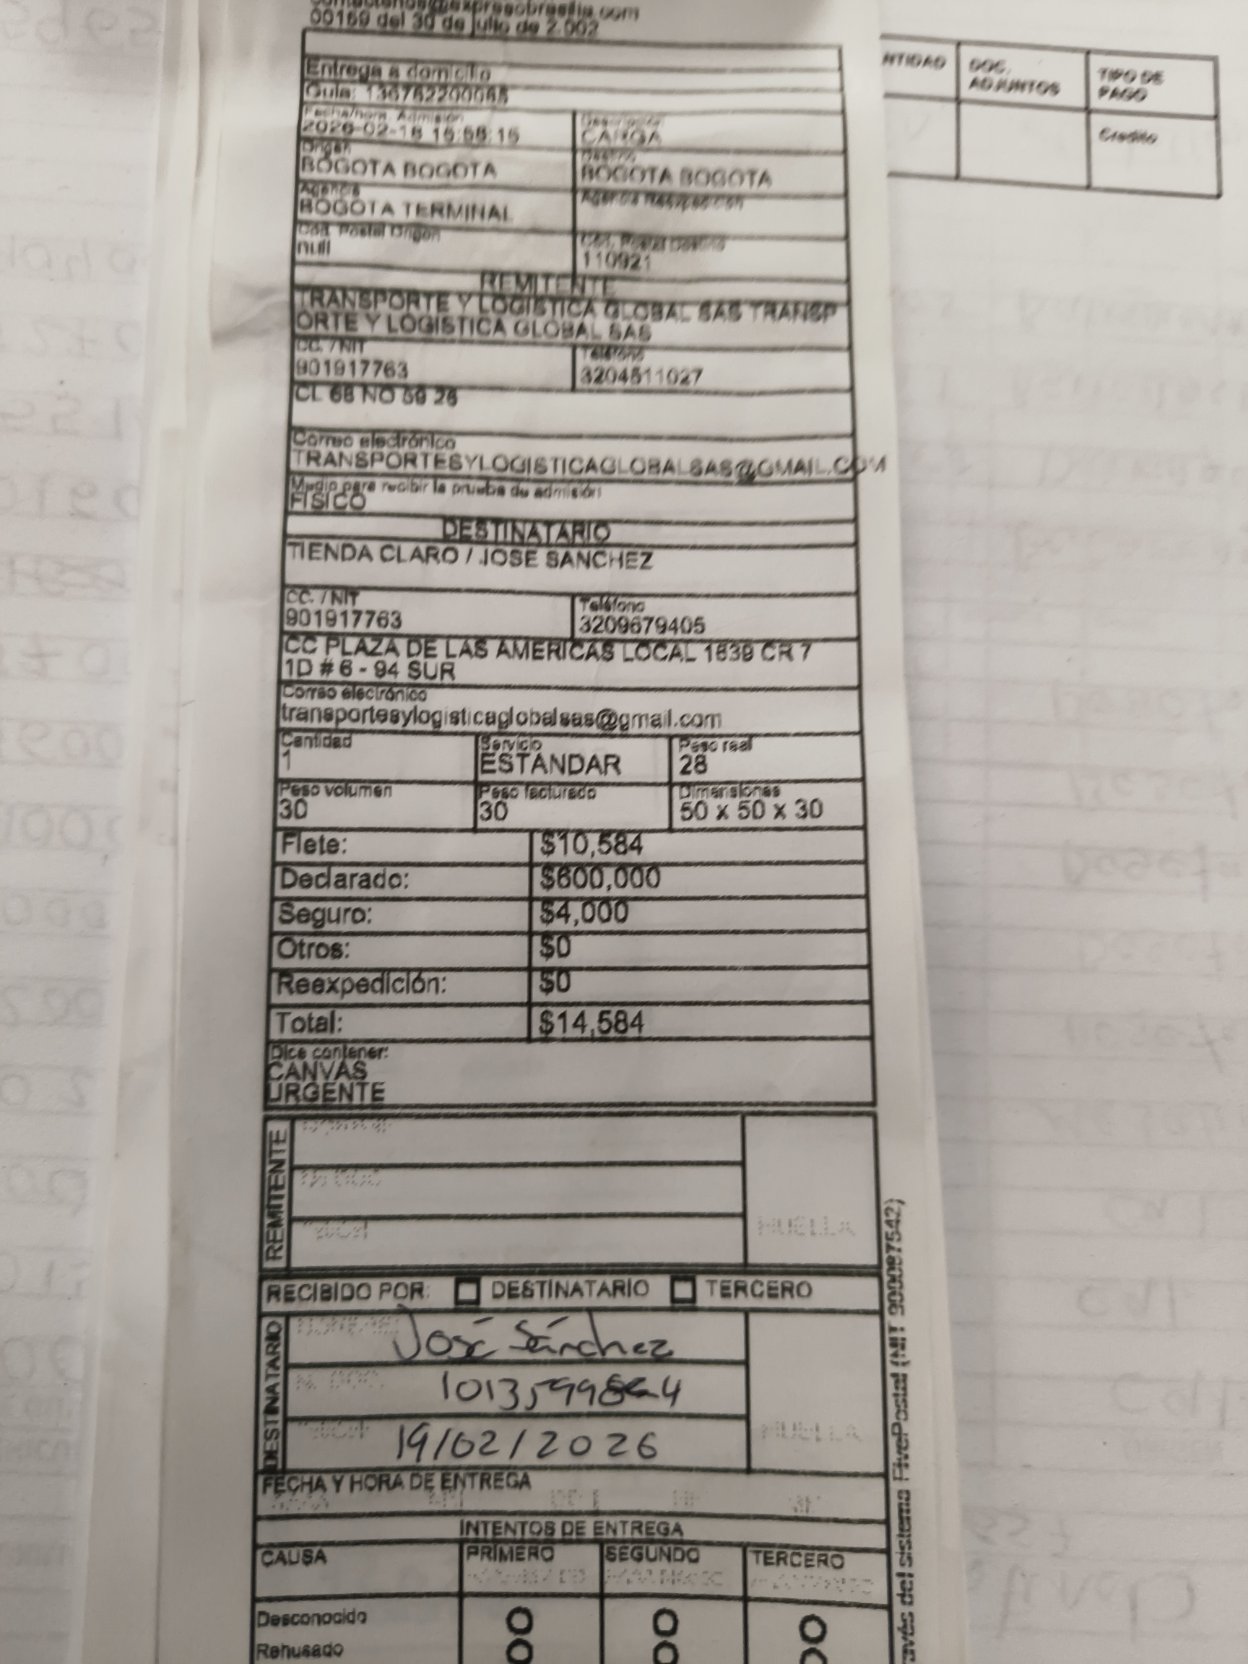 00169 del 30 de julio de 2.002
Entrega a domicilio
Guia: 136762200065
Fecha/hora Admisión
2026-02-18 16:58:15
Descripción
CARGA
Origen
BOGOTA BOGOTA
Destino
BOGOTA BOGOTA
Agencia
BOGOTA TERMINAL
Cod. Postal Origen
null
Cod. Postal Destino
110921
REMITENTE
TRANSPORTE Y LOGISTICA GLOBAL SAS TRANSP
ORTE Y LOGISTICA GLOBAL SAS
CC. / NIT
901917763
Teléfono
3204511027
CL 68 NO 69 26
Correo electrónico
TRANSPORTESYLOGISTICAGLOBALSAS@GMAIL.COM
Medio para recibir la prueba de admisión
FISICO
DESTINATARIO
TIENDA CLARO / JOSE SANCHEZ
CC. / NIT
901917763
Teléfono
3209679405
CC PLAZA DE LAS AMERICAS LOCAL 1639 CR 7
1D # 6 - 94 SUR
Correo electrónico
transportesylogisticaglobalsas@gmail.com
Cantidad
1
Servicio
ESTANDAR
Peso real
28
Peso volumen
30
Peso facturado
30
Dimensiones
50 x 50 x 30
Flete: $10,584
Declarado: $600,000
Seguro: $4,000
Otros: $0
Reexpedición: $0
Total: $14,584
Dice contener:
CANVAS
URGENTE
REMITENTE
HUELLA
RECIBIDO POR: DESTINATARIO TERCERO
DESTINATARIO
José Sánchez
19/02/2026
HUELLA
FECHA Y HORA DE ENTREGA
INTENTOS DE ENTREGA
CAUSA PRIMERO SEGUNDO TERCERO
Desconocido
Rehusado
avés del sistema FivePostal (NIT 900087542)
NTIDAD
DOC.
ADJUNTOS
TIPO DE
PAGO
Credito